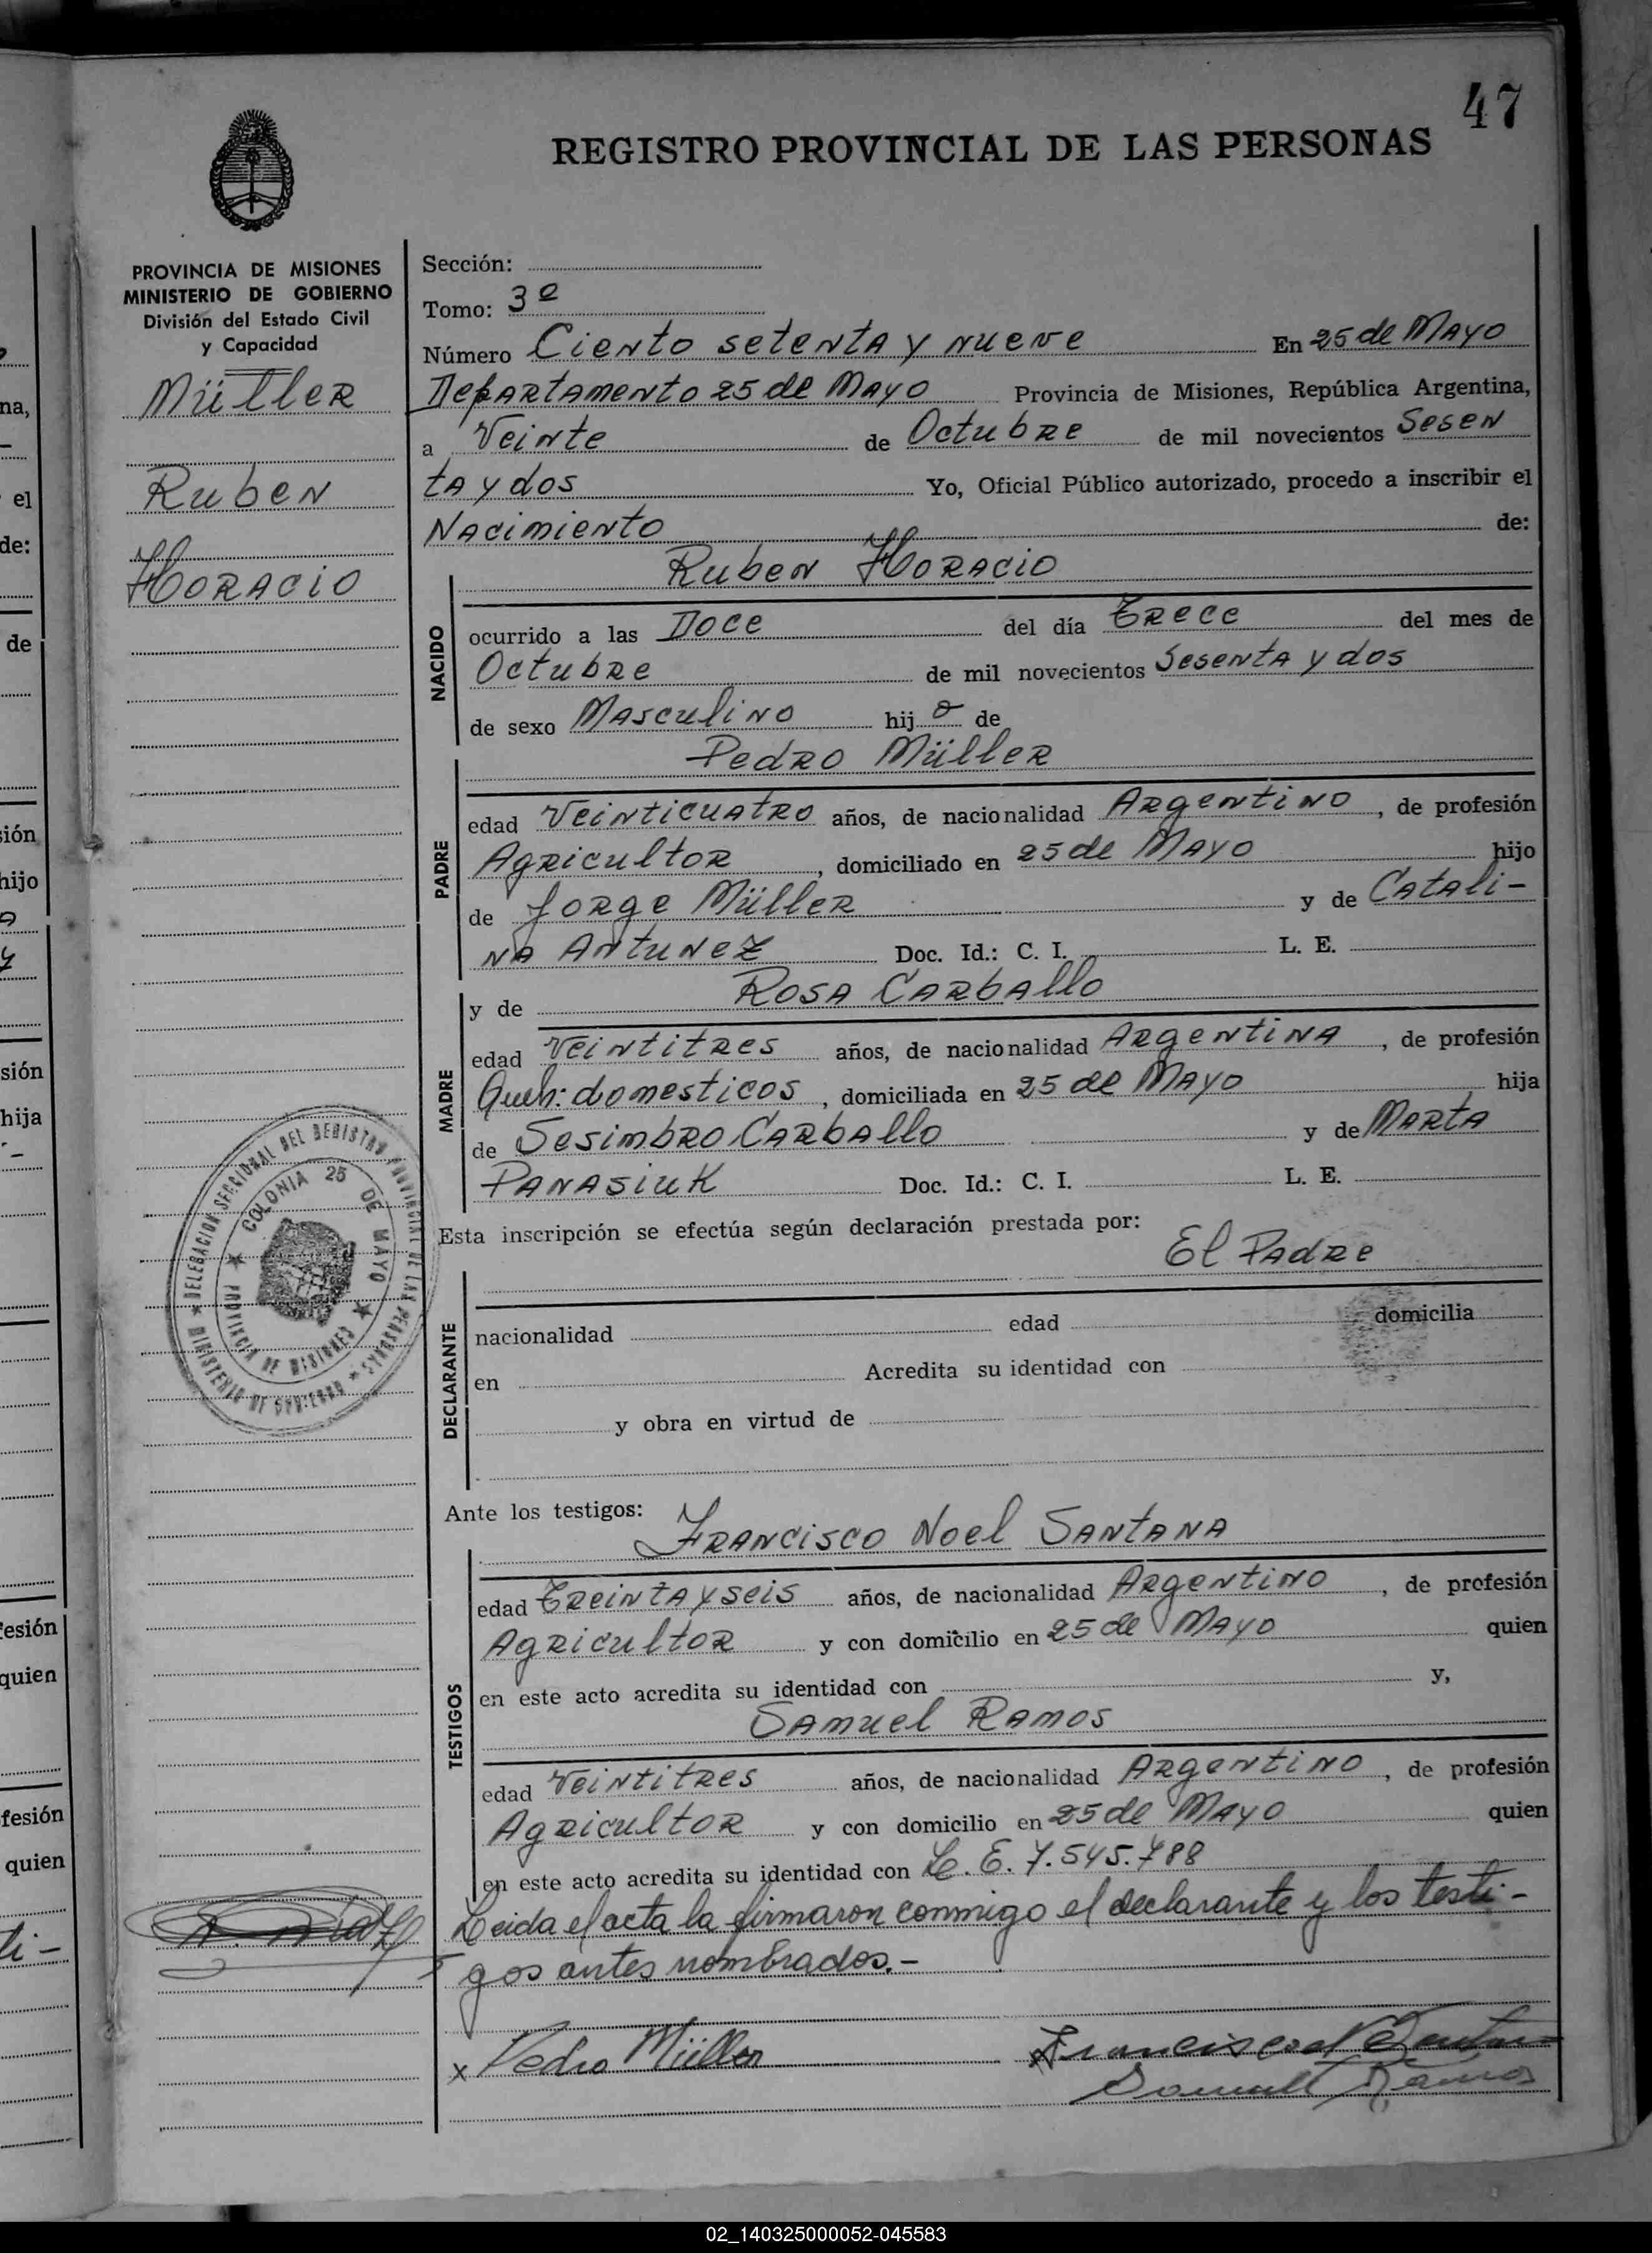 47
REGISTRO PROVINCIAL DE LAS PERSONAS
PROVINCIA DE MISIONES
MINISTERIO DE GOBIERNO
División del Estado Civil
y Capacidad
Müller
Ruben
Horacio
Sección:
Tomo: 3º
Número Ciento setenta y nueve En 25 de Mayo
Departamento 25 de Mayo Provincia de Misiones, República Argentina,
a Veinte de Octubre de mil novecientos Sesen
ta y dos Yo, Oficial Público autorizado, procedo a inscribir el
Nacimiento de:
Ruben Horacio
NACIDO
ocurrido a las Doce del día Trece del mes de
Octubre de mil novecientos Sesenta y dos
de sexo Masculino hijo de
Pedro Müller
PADRE
edad Veinticuatro años, de nacionalidad Argentino, de profesión
Agricultor, domiciliado en 25 de Mayo hijo
de Jorge Müller y de Catali-
na Antunez Doc. Id.: C. I. L. E.
y de Rosa Carballo
MADRE
edad Veintitres años, de nacionalidad Argentina, de profesión
Queh: domesticos, domiciliada en 25 de Mayo hija
de Sesimbro Carballo y de Marta
Panasiuk Doc. Id.: C. I. L. E.
Esta inscripción se efectúa según declaración prestada por:
El Padre
DECLARANTE
nacionalidad edad domicilia
en Acredita su identidad con
y obra en virtud de
DELEGACION SECCIONAL DEL REGISTRO PROVINCIAL DE LAS PERSONAS
MINISTERIO DE GOBIERNO
COLONIA 25 DE MAYO
PROVINCIA DE MISIONES
Ante los testigos:
Francisco Noel Santana
TESTIGOS
edad Treinta y seis años, de nacionalidad Argentino, de profesión
Agricultor y con domicilio en 25 de Mayo quien
en este acto acredita su identidad con y,
Samuel Ramos
edad Veintitres años, de nacionalidad Argentino, de profesión
Agricultor y con domicilio en 25 de Mayo quien
en este acto acredita su identidad con L. E. 7.545.788
Leida el acta la firmaron conmigo el declarante y los testi-
gos antes nombrados.-
x Pedro Müller
Francisco N Santana
Samuel Ramos
na,
el
de:
de
sión
hijo
sión
hija
esión
quien
fesión
quien
ti-
02_140325000052-045583